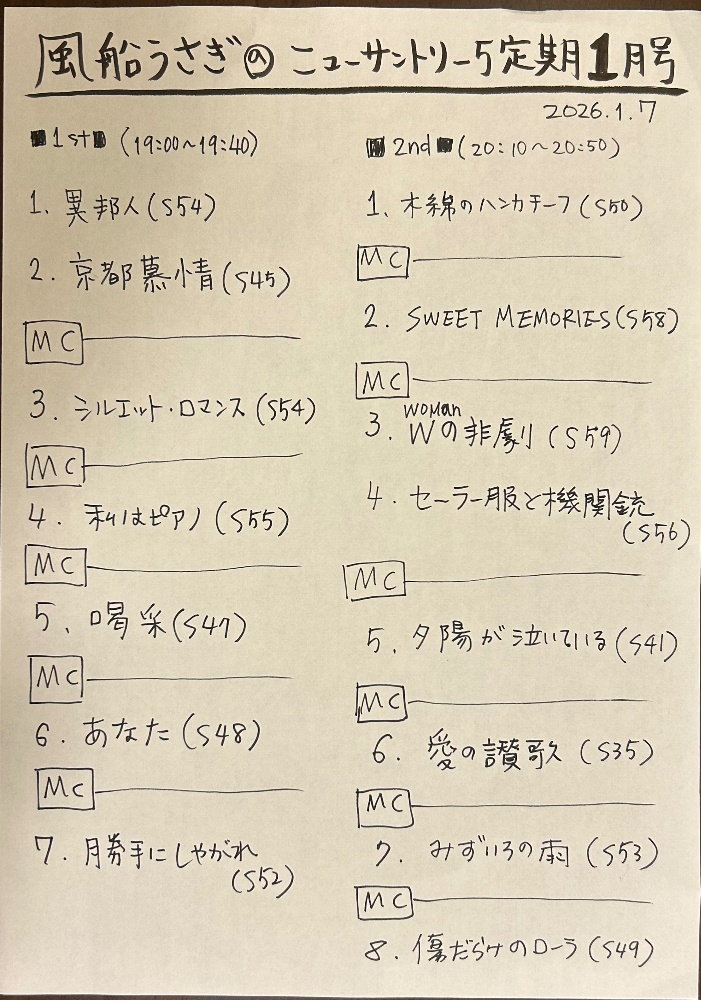 風船うさぎの ニューサントリー5定期1月号
2026.1.7
■1st■ (19:00〜19:40)
1、異邦人(S54)
2、京都慕情(S45)
MC
3、シルエット・ロマンス(S54)
MC
4、私はピアノ(S55)
MC
5、喝采(S47)
MC
6、あなた(S48)
MC
7、月勝手にしやがれ
(S52)
■2nd■(20:10〜20:50)
1、木綿のハンカチーフ(S50)
MC
2、SWEET MEMORIES(S58)
MC
woman
3、Wの非劇(S59)
4、セーラー服と機関銃
(S56)
MC
5、夕陽が泣いている(S41)
MC
6、愛の讃歌(S35)
MC
7、みずいろの雨(S53)
MC
8、傷だらけのローラ(S49)